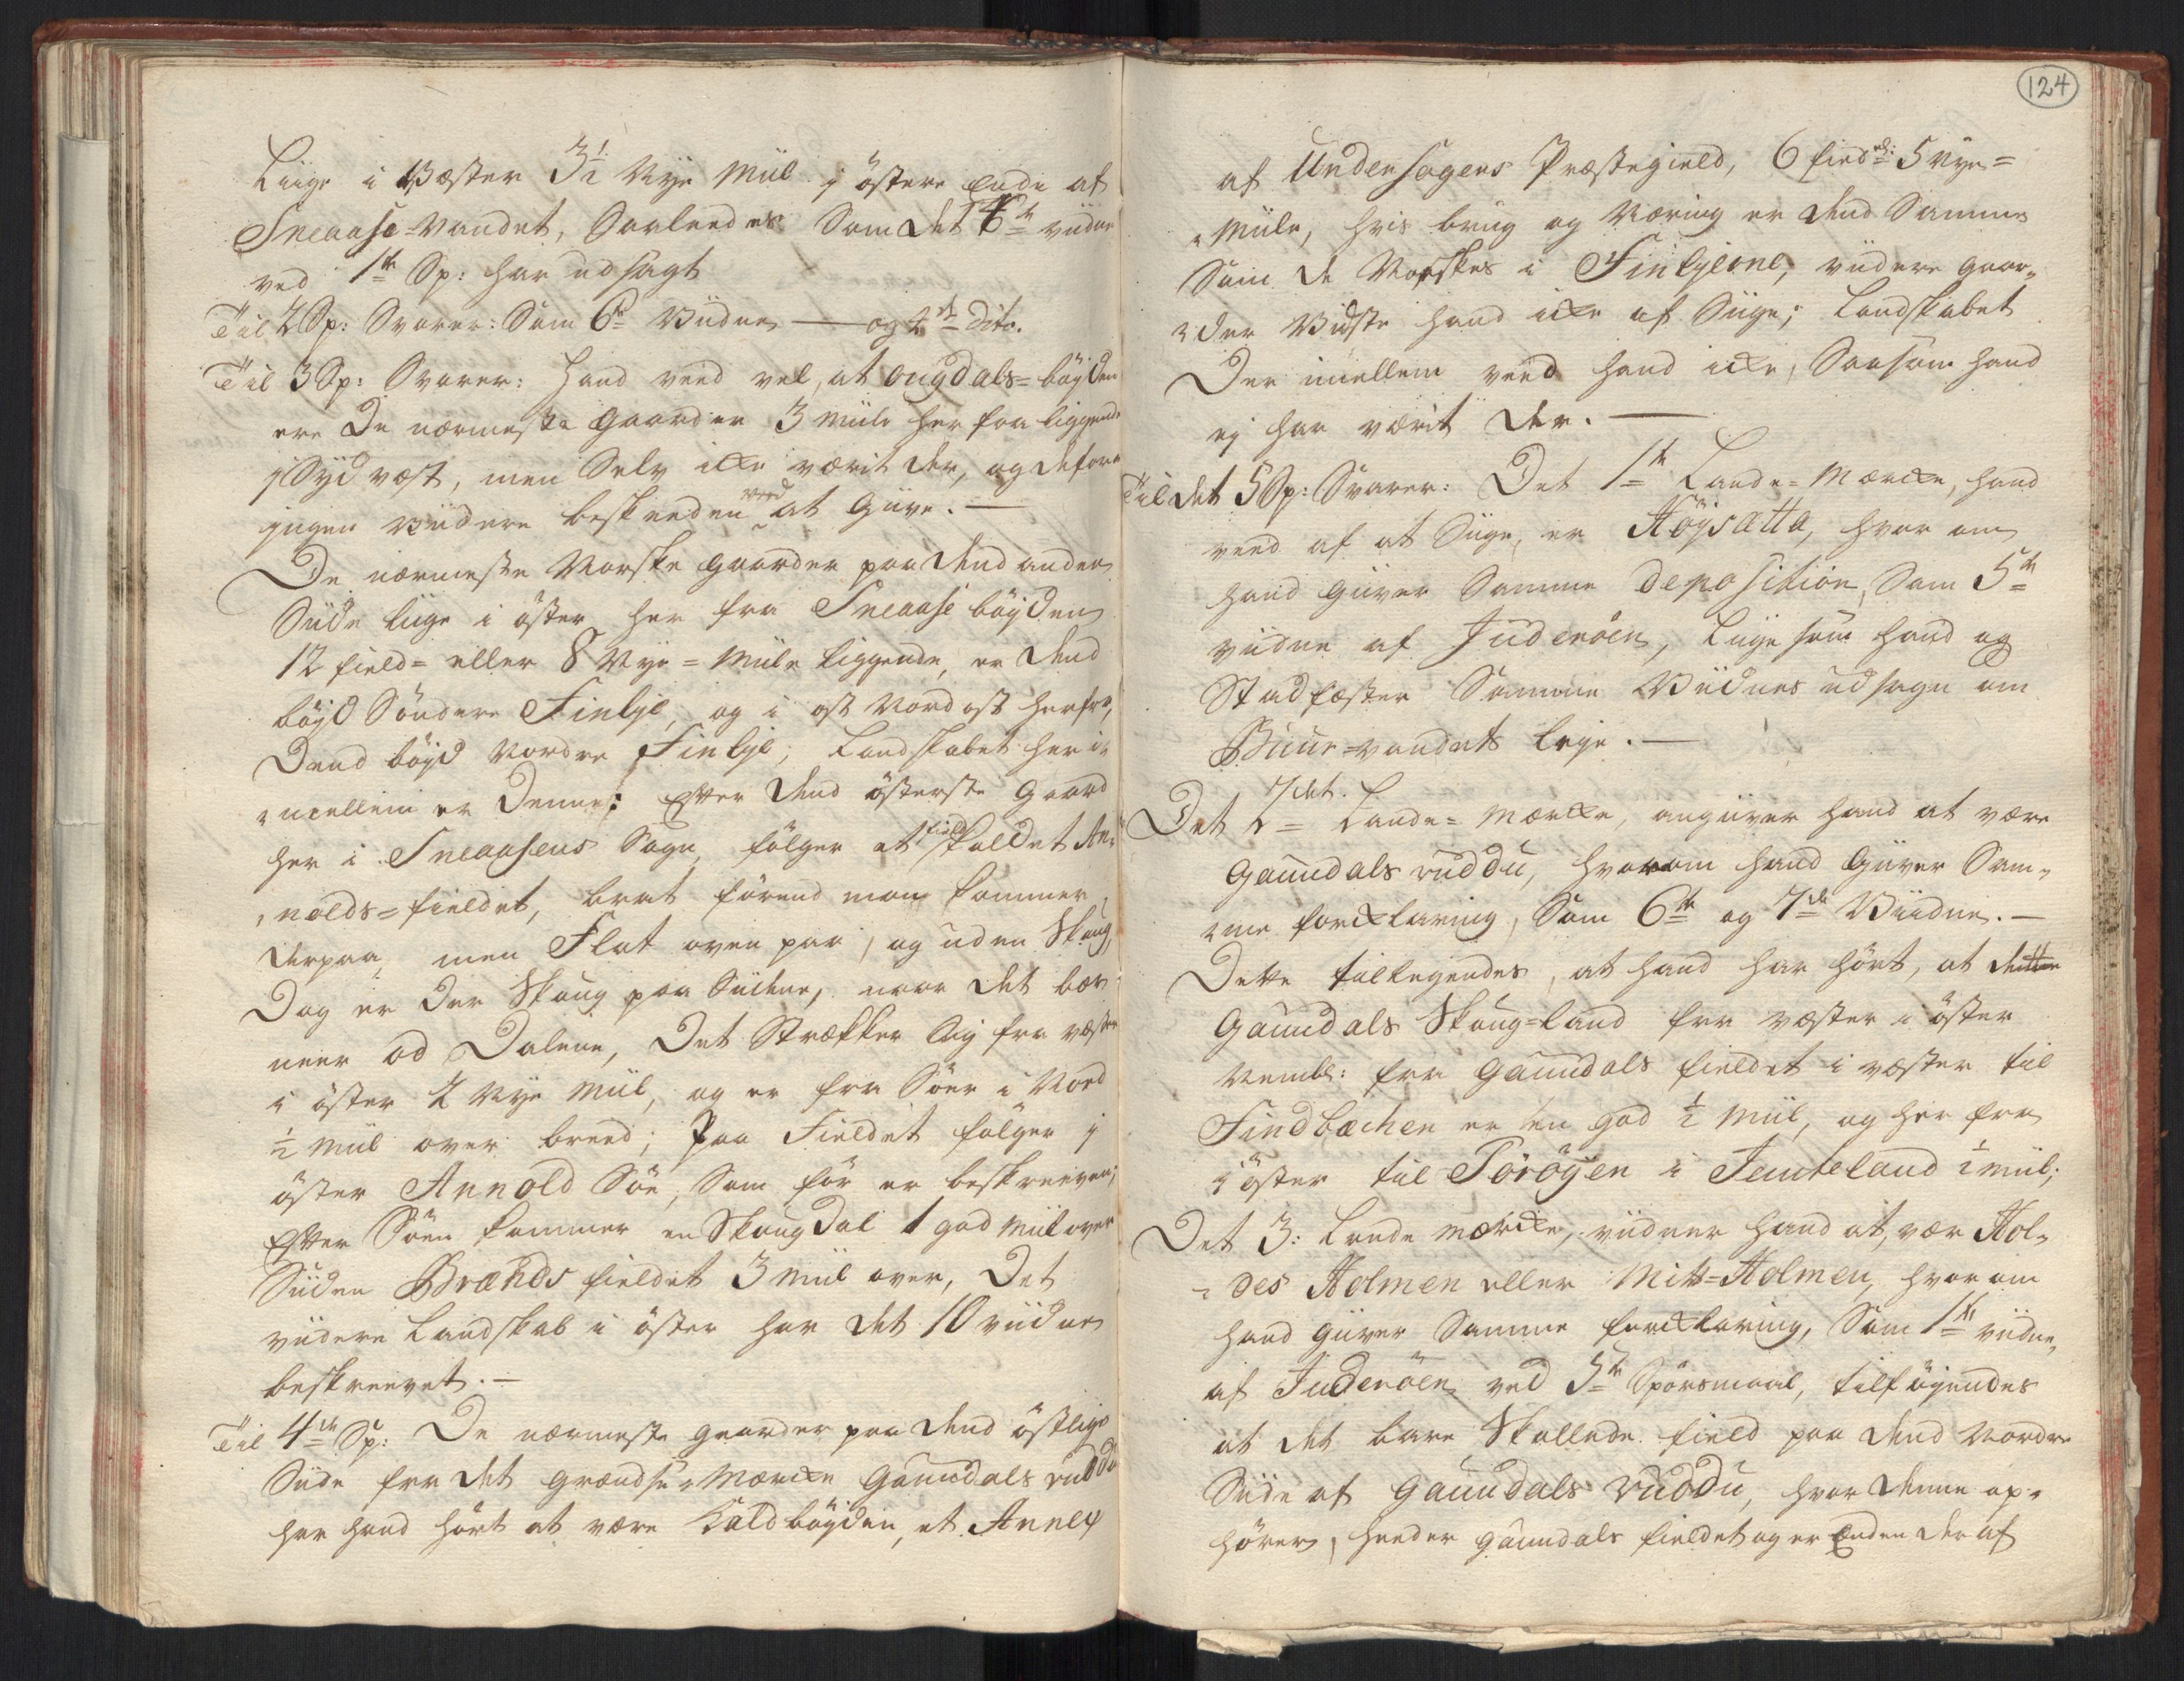 Liige i Væster 3½ Nye Miil j östere Ende af
Sneaase-Vandet, Saaleedes Som det 4de viidne
ved 1te Sp: har udsagt
Til 2 Sp: Svarer: Som 6te Viidne — og 2det dito.
Til 3 Sp: Svarer: Hand veed vel, at Ougdals-böyden
ere De nærmeste gaarder 3 Miile her fra liggende
j Syd væst, men Selv icke værit der, og defore
jngen viidere beskeeden veed at Giive. —
De nærmeste Norske gaarder paa dend anden
Siide liige i öster her fra Sneaase böyden
12 field- eller 8 Nye-Miile liggende, er dend
böyd Söndere Finlye, og i ost Nord ost herfra,
Dend böyd Nordre Finlye; Landskabet her i-
mellem er Denne: Efter dend österste Gaard
her i Sneaasens Sogn, fölger et field kaldet An-
nolds-fieldet, brat förend man kommer
derpaa, men Flat oven paa, og uden Skoug,
Dog er der Skoug paa Siiderne, naar det bær
neer ad Dalene, Det Strækker Sig fra væster
i öster 2 Nye Miil, og er fra Söer i Nord
½ Miil over breed; Paa Fieldet fölger j
öster Annold Söe, Som för er beskreeven;
Efter Söen kommer en Skoug Dal 1 god Miil over
Siiden Brænds fieldet 3 Miil over, Det
viidere Landskab i öster har det 10 viidne
beskreevet. —
Til 4de Sp: De nærmeste gaarder paa dend östlige
Siide fra det Grændse-Mærcke Gaundals ruddu
har hand hört at være Kald böyden, et Annex
124
af Undersagers Præstegield, 6 field eller 5 Nye-
Miile, hvis brug og Næring er dend Samme
Som de Norskes i Finlyerne, viidere gaar-
der Viidste hand icke af Siige; Landskabet
Der imellem veed hand icke, Saasom hand
ej har værit der. —
Til det 5 Sp: Svarer: Det 1te Lande-Mærcke, hand
veed af at Siige, er Höysatta, hvor om
hand Giiver Samme Deposition, Som 5te
viidne af Inderöen, Liigesom hand og
Stadfæster Samme Viidnes udsagn om
Buur-vandets leye. —
Det 2det Lande-Mærcke, angiiver hand at være
Gaundals ruddu, hvorom hand Giiver Sam-
me forcklaring, Som 6te og 7de Viidne. —
Dette tilleyendes, at hand har hört, at
Gaundals Skoug-Land fra væster i öster
Nembl: fra Gaundals fieldet i væster til
Findbæchen er en god ½ Miil, og her fra
i öster til Toröyen i Jemteland ½ Miil;
Det 3: Lande Mærcke, viidner hand at, vær Hol-
des Holmen eller Mitt-Holmen, hvor om
hand Giiver Samme forcklaring, Som 1te viidne,
af Inderöen ved 5te Spörsmaal, tilföyendes
at det bare Skallede field paa dend Nordre
Siide af Gaundals Ruddu, hvor denne op-
hörer, heeder Gaundals fieldet og er Enden der af